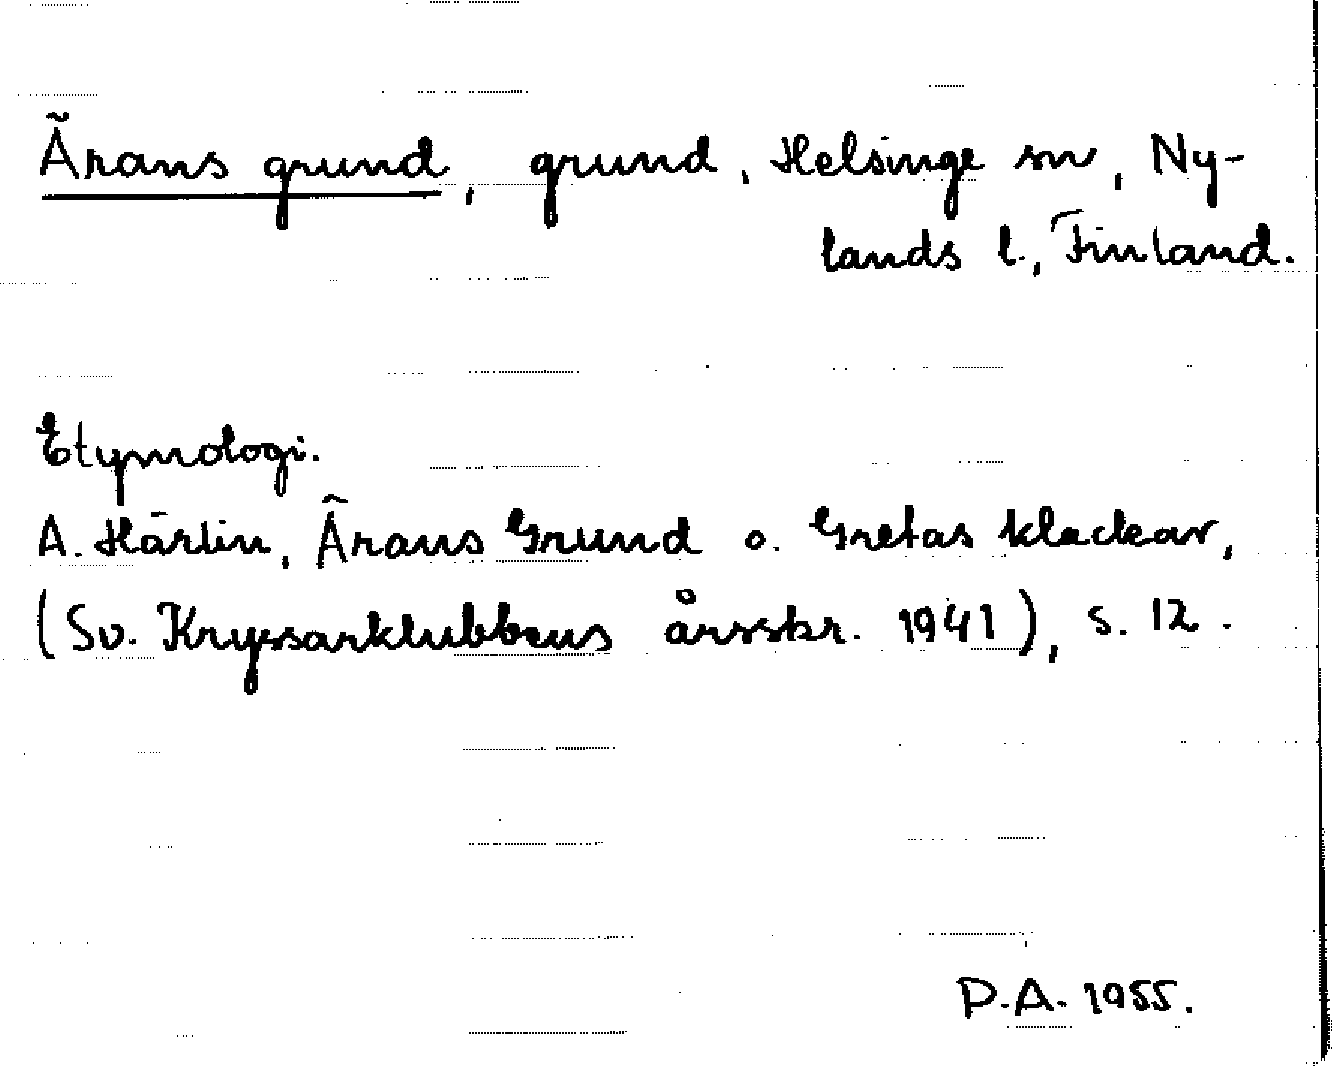 Ärans grund, grund, Helsinge sn, Ny-
lands l., Finland.
Etymologi.
A. Härlin, Ärans Grund o. Gretas klackar,
(Sv. Kryssarklubbens årsskr. 1941), s. 12.
P.A. 1955.